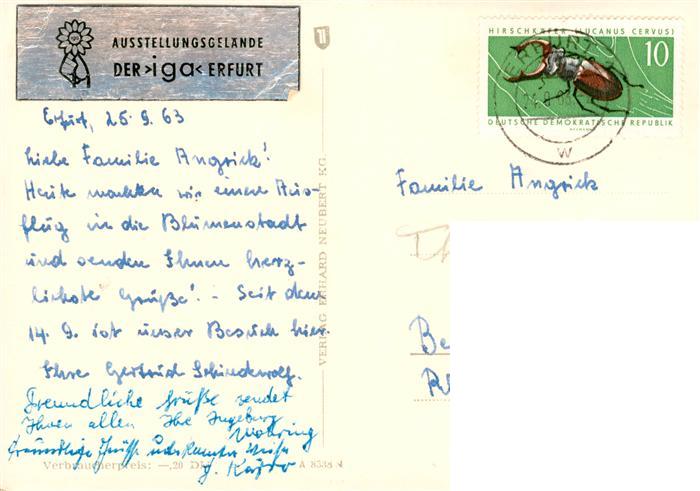 AUSSTELLUNGSGELÄNDE
DER >iga< ERFURT
HIRSCHKÄFER (LUCANUS CERVUS)
10
DEUTSCHE DEMOKRATISCHE REPUBLIK
ERFURT
W
Erfurt, 25.9.63
Liebe Familie Angrick!
Heute machten wir einen Aus-
flug in die Blumenstadt
und senden Ihnen herz-
lichste Grüße! - Seit dem
14.9. ist unser Besuch hier.
Ihre Gertrud Schindewolf.
Freundliche Grüße sendet
Ihnen allen Ihre Ingeburg
Familie Angrick
Be
VERLAG ERHARD NEUBERT KG.
Verbraucherpreis: —,20 DM
A 8538 N